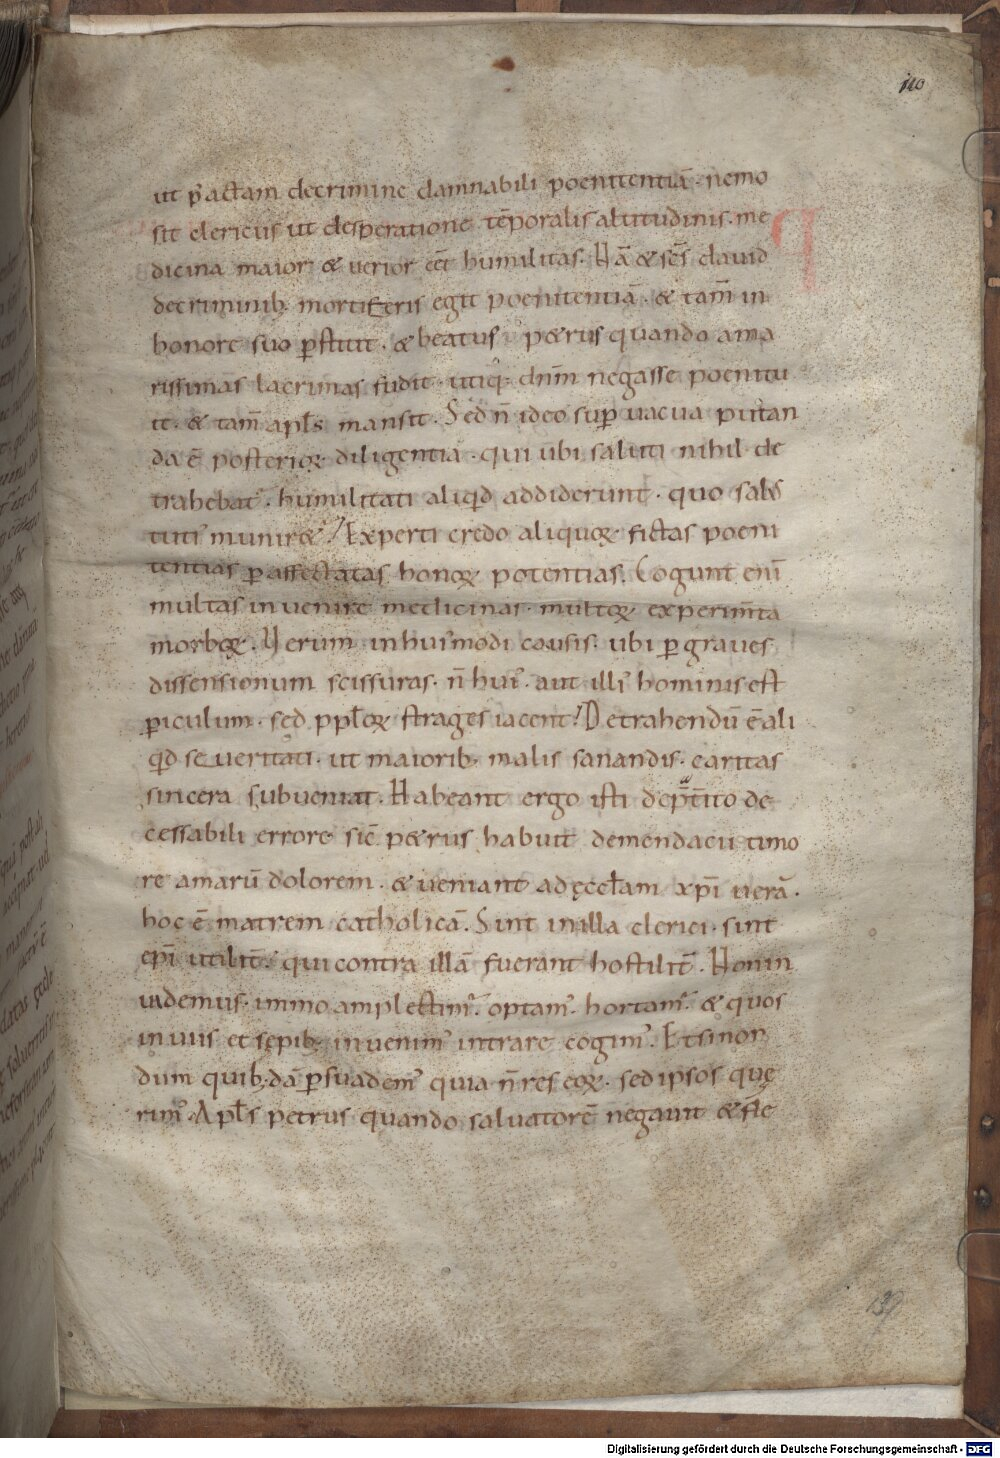 110
ut p̄ actam decrimine damnabili poenitentiā · nemo
sit clericus ut desperatione tēporalis altitudinis · me
dicina maior & verior eēt humilitas. Nā & sēs david
decriminib; mortiferis egit poenitentiā · & tam̄ in
honore suo p̄stitit · & beatus petrus quando ama
rissimas lacrimas fudit · utiq; dn̄m negasse poenitu
it · & tam̄ apl̄s mansit. Sed n̄ ideo sup̄ vacua putan
da ē posteriorꝝ diligentia · qui ubi saluti nihil de
trahebat · humilitati aliqd addiderunt · quo salus
tuti munire& Experti credo aliquorꝝ fictas poeni
tentias p̄ affectatas honorꝝ potentias. Cogunt enī
multas in venire medicinas · multorꝝ experimta
morborꝝ. Verum in huismodi causis · ubi p̄ graves
dissensionum scissuras · n̄ hui᾽ aut illi᾽ hominis est
p̄iculum · sed ppl̄orꝝ strages iacent! Detrahendū ē ali
qd se veritati · ut maiorib; malis sanandis · caritas
sincera subveniat. Habeant ergo isti de p̄t̄ito de
cessabili errore sic̄ petrus habuit demendacii timo
re amarū dolorem · & veniant ad ęccl̄am xp̄i verā ·
hoc ē matrem catholicā. Sint in illa clerici · sint
ep̄i utilit̄ · qui contra illā fuerant hostilit̄. Non in
videmus · immo amplectim᾽ · optam᾽ · hortam᾽ · & quos
in viis et sępib; invenim᾽ intrare cogim᾽. Etsi non
dum quib;dā p̄suadem᾽ quia n̄ res eorꝝ · sed ipsos quę
rim᾽ · Apl̄s petrus quando salvatorē negavit & fle
139
Digitalisierung gefördert durch die Deutsche Forschungsgemeinschaft · DFG